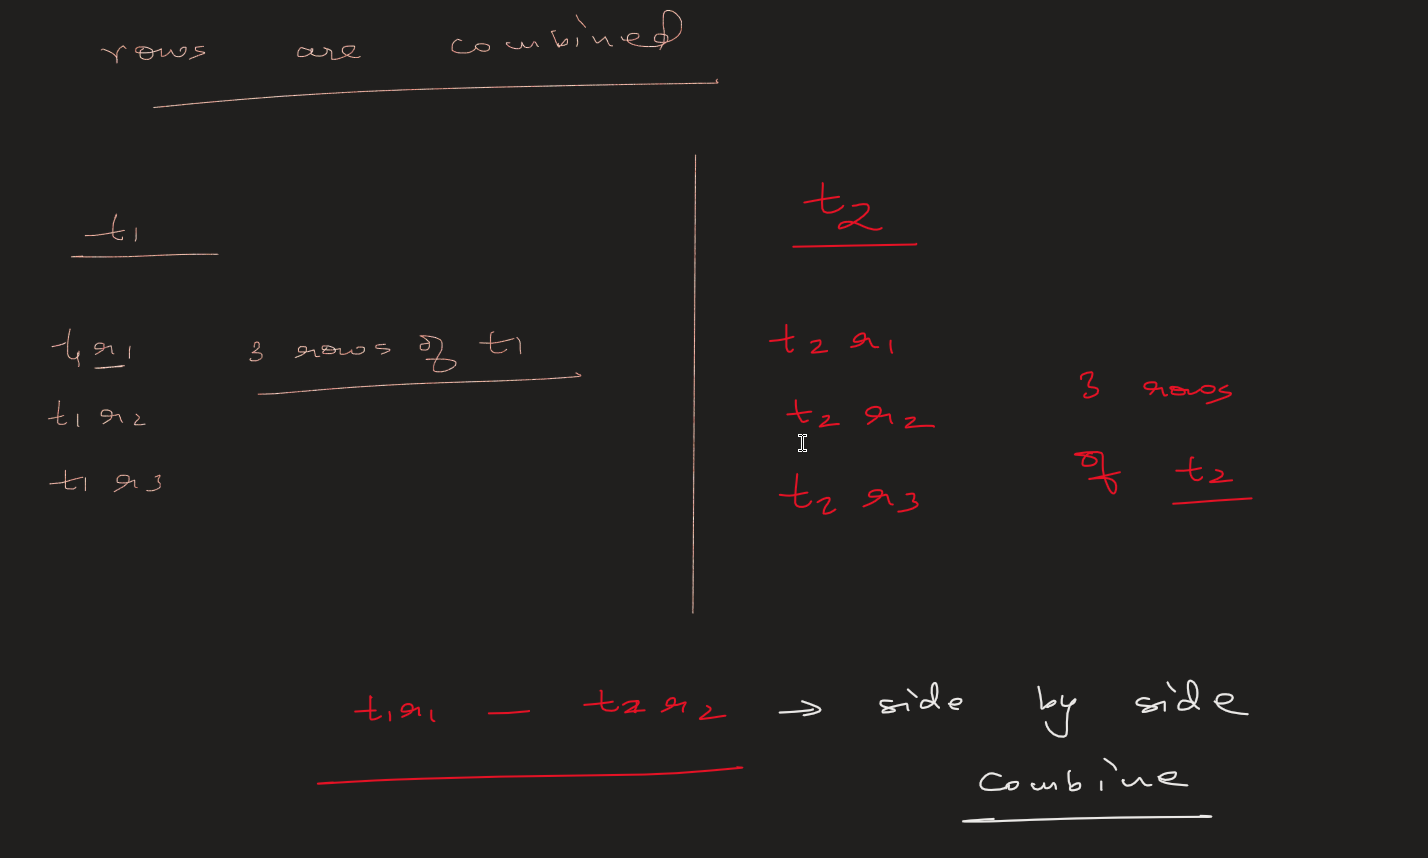 rows are combined
t1
t2
t1 r1 3 rows of t1
t1 r2
t1 r3
t2 r1
t2 r2
t2 r3
3 rows
of t2
t1r1 — t2 r2 → side by side
combine